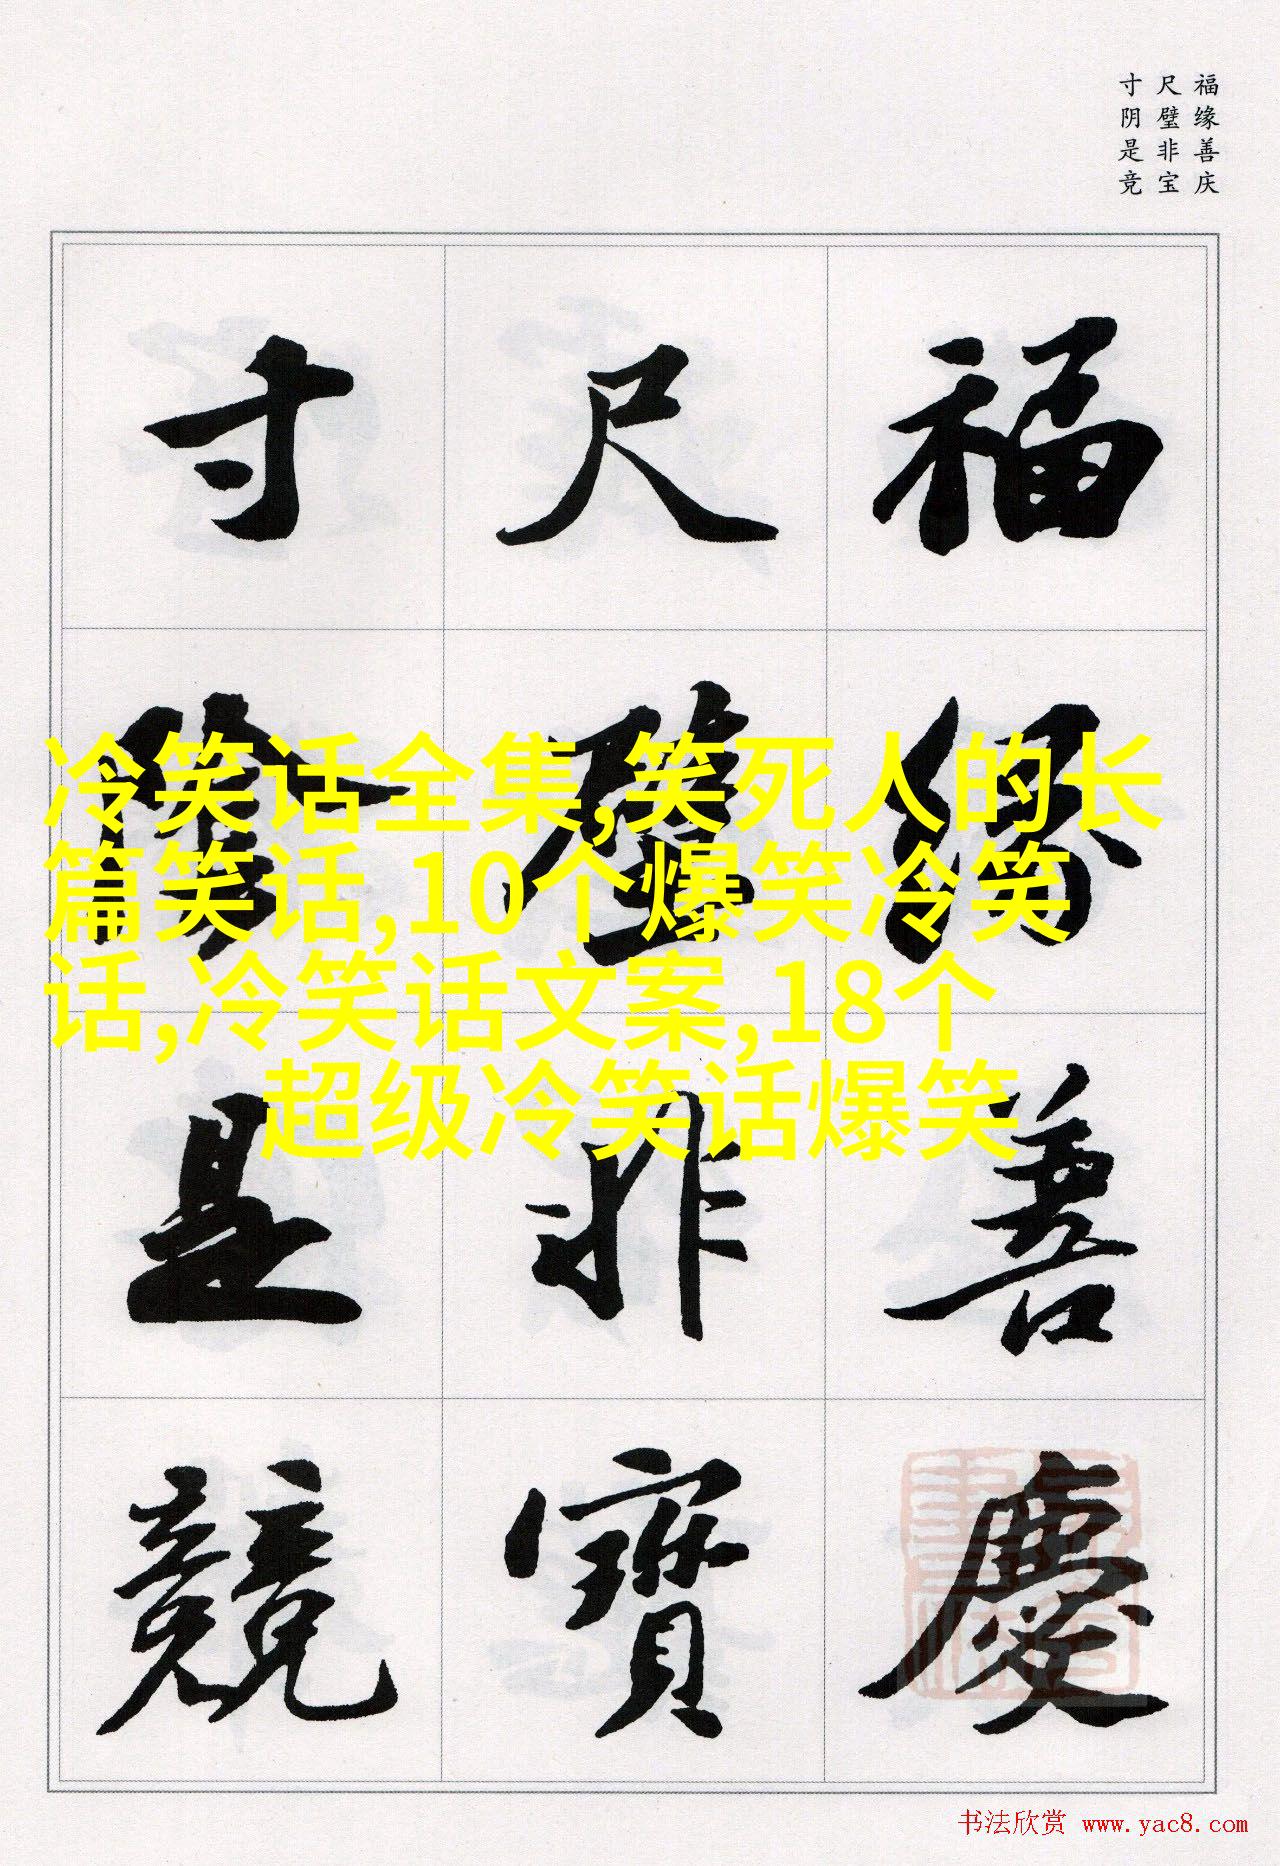 福缘善庆
尺璧非宝
寸阴是竞
福緣善慶
尺璧非寶
寸陰是競
冷笑话全集,笑死人的长
篇笑话,10个爆笑冷笑
话,冷笑话文案,18个
超级冷笑话爆笑
书法欣赏 www.yac8.com